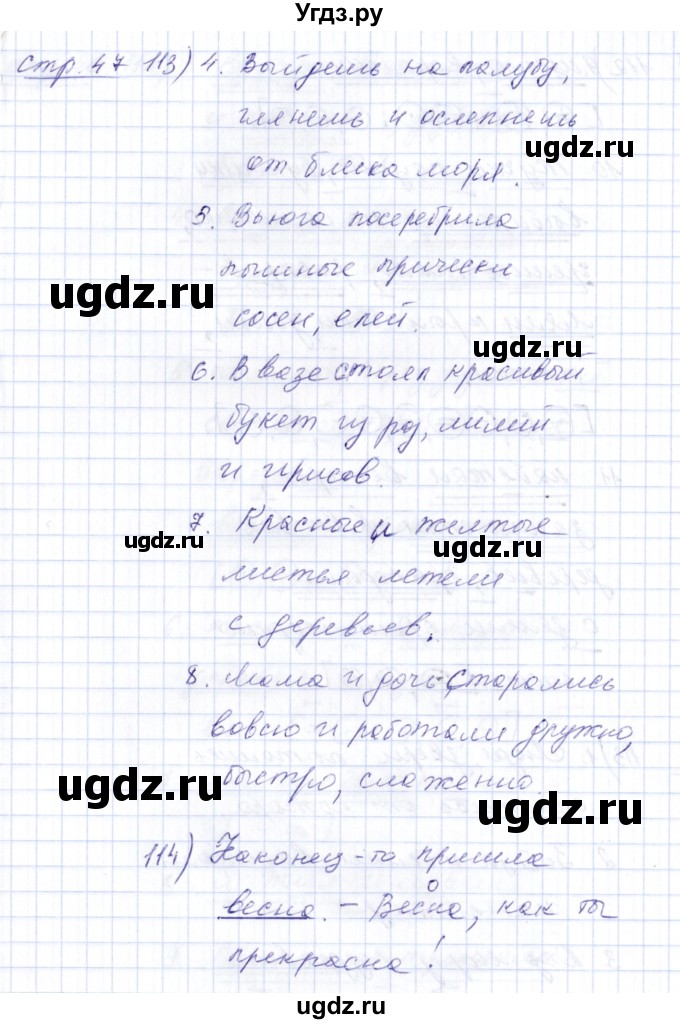 Угдз.ру
стр. 47 113) 4. Выйдешь на палубу,
глянешь и ослепнешь
ugdz.ru
от блика моря.
5. Вьюга посеребрила
пышные прически
ugdz.ru
сосен, елей.
ugdz.ru
6. В вазе стоял красивый
букет из роз, лилий
и ирисов.
7. Красные и желтые
ugdz.ru
ugdz.ru
листья летели
с деревьев.
8. Мама и дочь старались
вовсю и работали дружно,
быстро, слаженно.
ugdz.ru
ugdz.ru
114) Наконец-то пришла
весна. - Весна, как ты
прекрасна!
ugdz.ru